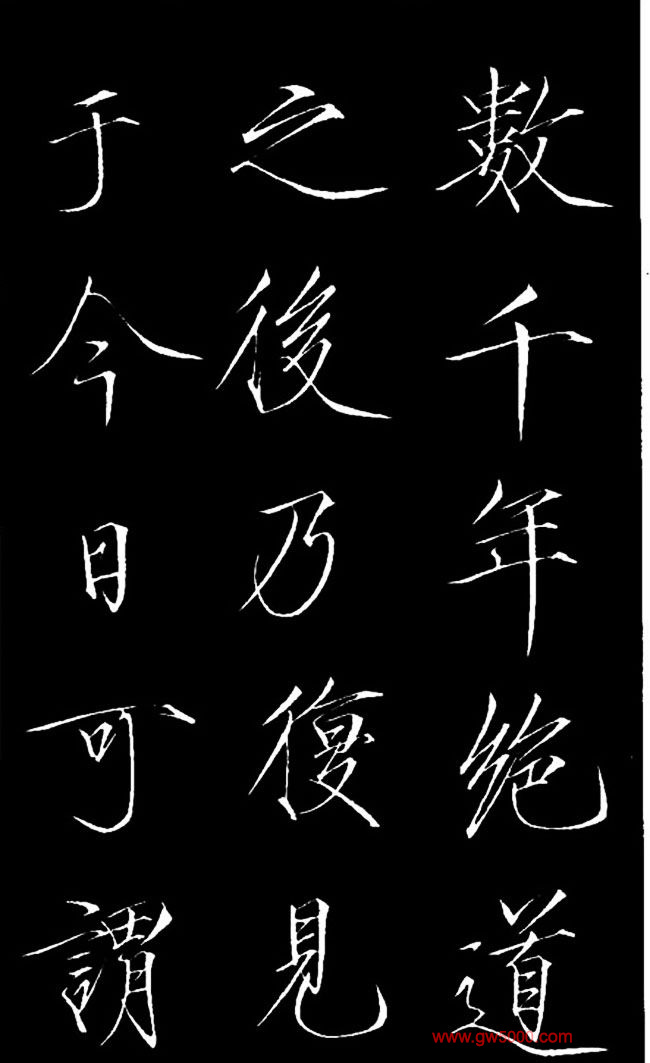 數千年絶道
之後乃復見
于今日可謂
www.gw5000.com